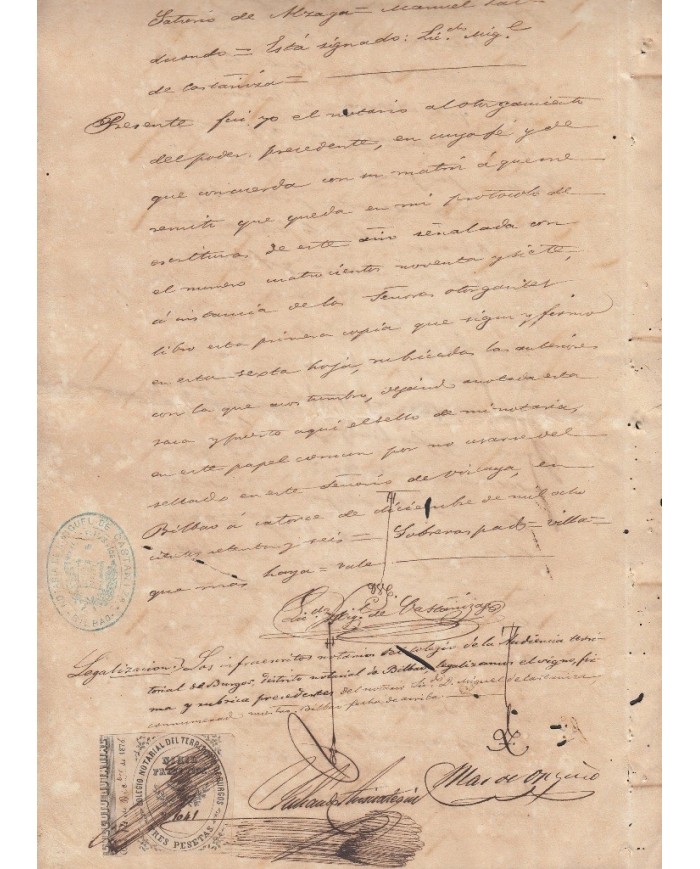 de Alzaga = Manuel
= Está signado: Lic.do Mig.l
de Castañiza =
Presente fuí yo el notario al otorgamiento
del poder precedente, en cuya fé y de
que concuerda con su matriz á que me
remito que queda en mi protocolo de
escrituras de este año señalada con
el numero cuatrocientos noventa y siete,
á instancia de los Señores otorgantes
libro esta primera copia que signo y firmo
en esta sexta hoja, rubricadas las anteriores
con la que acostumbro, dejando anotada esta
saca y puesto aquí el sello de mi notaría,
en este papel comun por no usarse del
sellado en este Señorío de Vizcaya, en
Bilbao á catorce de diciembre de mil ocho
cientos setenta y seis =
que mas haya = vale
Lic.do Mig.l de Castañiza
MIGUEL DE CASTAÑIZA
BILBAO
Legalizacion) Los infrascritos notarios del colegio de la Audiencia
territorial de Burgos, distrito notarial de Bilbao legalizamos el signo, fir
ma y rubrica precedentes del notario Lic.do D. Miguel de Castañiza
Bilbao fecha de arriba
COLEGIO NOTARIAL DEL TERRITORIO DE BURGOS
TRES PESETAS